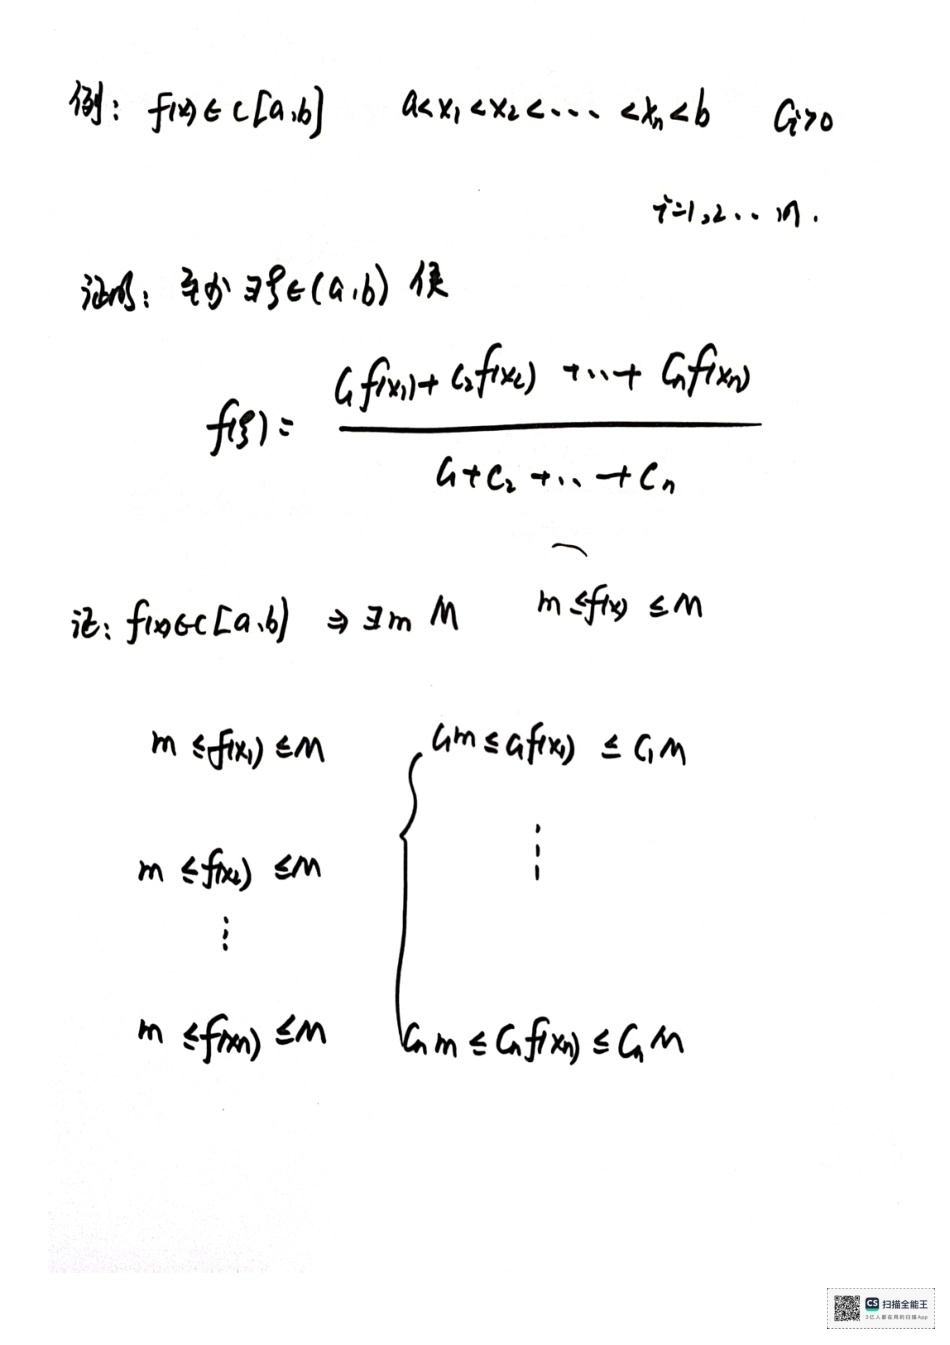 例: f(x)∈C[a,b] a<x₁<x₂<...<xₙ<b Cᵢ>0
i=1,2...,n.
证明: 至少∃ξ∈(a,b) 使
f(ξ)= (C₁f(x₁)+C₂f(x₂)+...+Cₙf(xₙ))/(C₁+C₂+...+Cₙ)
证: f(x)∈C[a,b] ⇒ ∃m M m≤f(x)≤M
m≤f(x₁)≤M { C₁m≤C₁f(x₁)≤C₁M
m≤f(x₂)≤M ⋮
⋮
m≤f(xₙ)≤M Cₙm≤Cₙf(xₙ)≤CₙM
CS 扫描全能王
3亿人都在用的扫描App